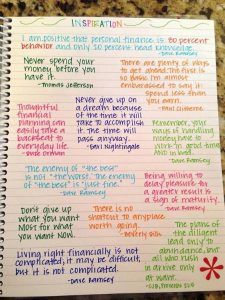 INSPIRATION
I am positive that personal finance is 80 percent
behavior and only 20 percent head knowledge.
-Dave Ramsey
Never spend your
money before you
have it.
-Thomas Jefferson
There are plenty of ways
to get ahead. The first is
so basic I'm almost
embarrassed to say it:
spend less than
you earn.
-Paul Clitheroe
Thoughtful
financial
planning can
easily take a
backseat to
everyday life.
-Suze Orman
Never give up on
a dream because
of the time it will
take to accomplish
it. The time will
pass anyway.
-Earl Nightingale
Remember, your
ways of handling
money have to
work in good times
and in bad.
-Dave Ramsey
The enemy of "the best"
is not "the worst." The enemy
of "the best" is "just fine."
-Dave Ramsey
Being willing to
delay pleasure for
a greater result is
a sign of maturity.
-Dave Ramsey
Don't give up
what you want
most for what
you want now.
There is no
shortcut to anyplace
worth going.
-Beverly Sills
The plans of
the diligent
lead only to
abundance; but
all who rush
in arrive only
at want.
Living right financially is not
complicated; it may be difficult,
but it is not complicated.
-Dave Ramsey